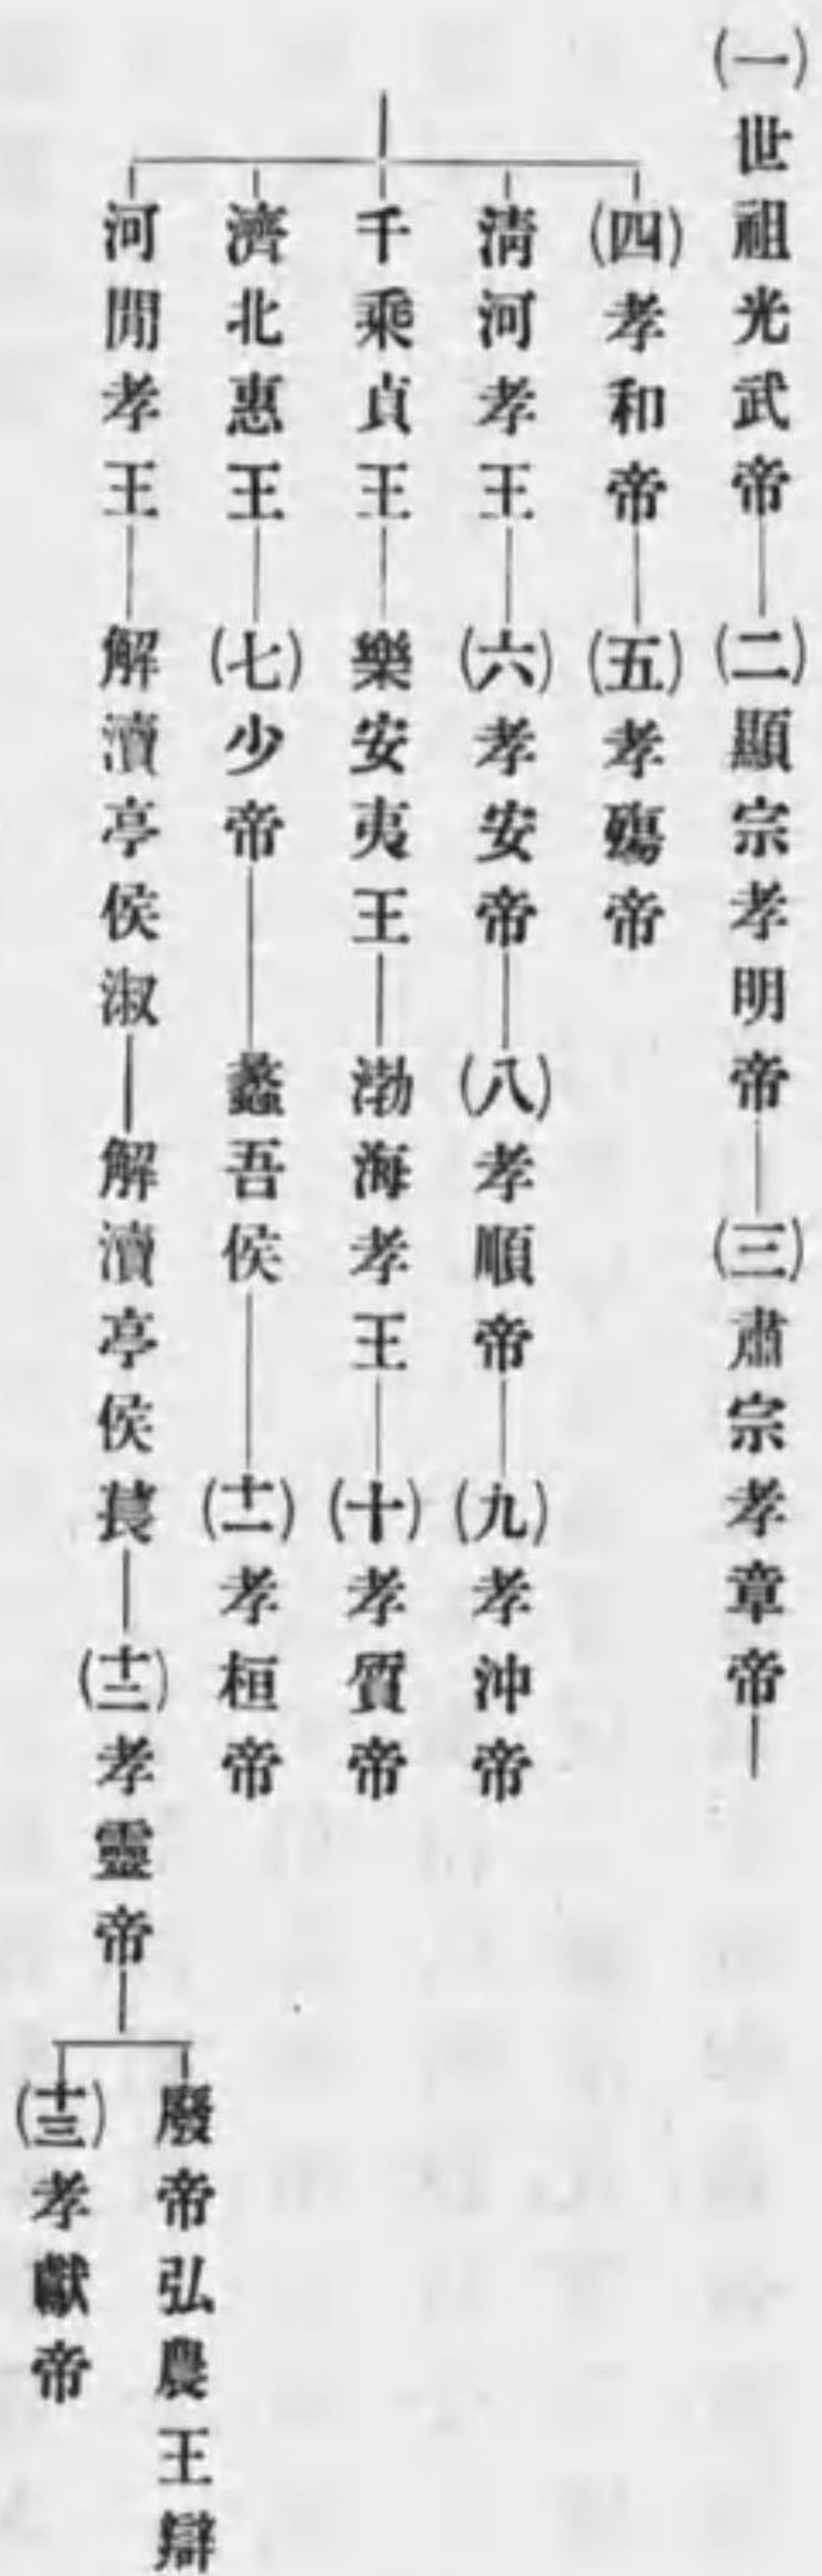 (一)世祖光武帝—(二)顯宗孝明帝—(三)肅宗孝章帝—
(四)孝和帝—(五)孝殤帝
淸河孝王—(六)孝安帝—(八)孝順帝—(九)孝沖帝
千乘貞王—樂安夷王—渤海孝王—(十)孝質帝
濟北惠王—(七)少帝—蠡吾侯—(十一)孝桓帝
河閒孝王—解瀆亭侯淑—解瀆亭侯萇—(十二)孝靈帝
廢帝弘農王辯
(十三)孝獻帝